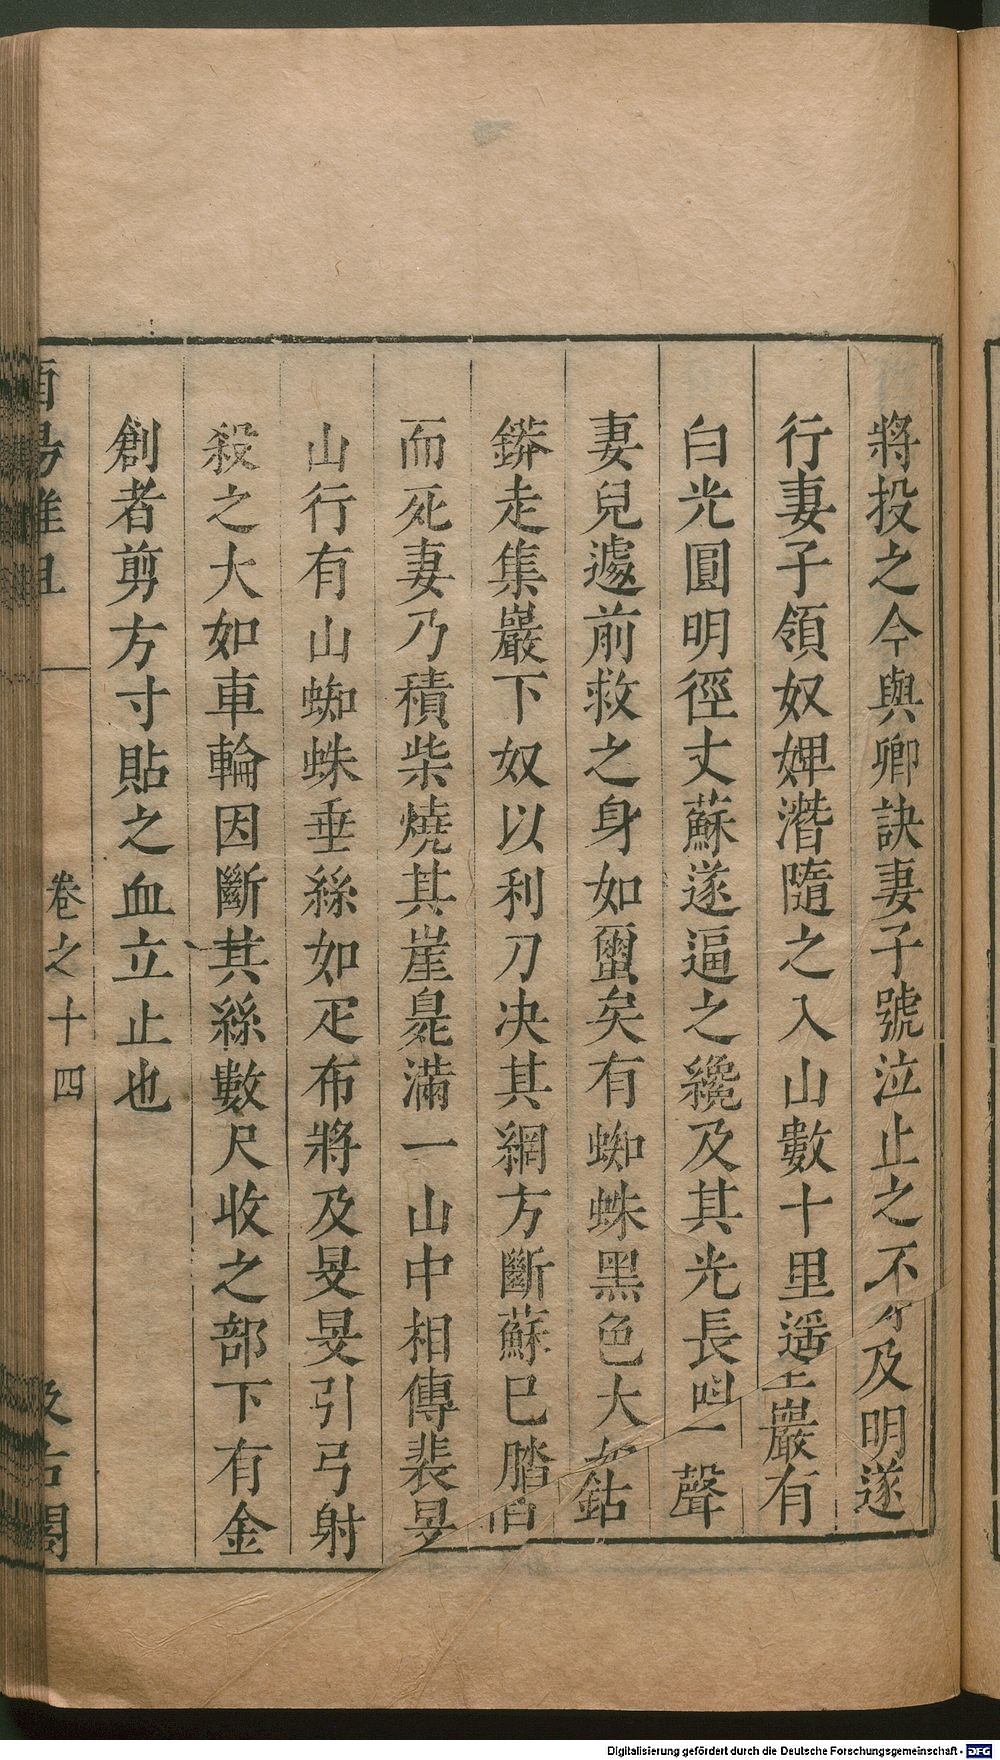 將投之今與卿訣妻子號泣止之不可及明遂
行妻子領奴婢潛隨之入山數十里遥望巖有
白光圓明徑丈蘇遂逼之纔及其光長呌一聲
妻兒遽前救之身如蠒矣有蜘蛛黑色大如鈷
鏻走集巖下奴以利刀决其網方斷蘇已腦陷
而死妻乃積柴燒其崖臭滿一山中相傳裴旻
山行有山蜘蛛垂絲如疋布將及旻旻引弓射
殺之大如車輪因斷其絲數尺收之部下有金
創者剪方寸貼之血立止也
酉易隹且 卷之十四 及古閣
Digitalisierung gefördert durch die Deutsche Forschungsgemeinschaft - DFG